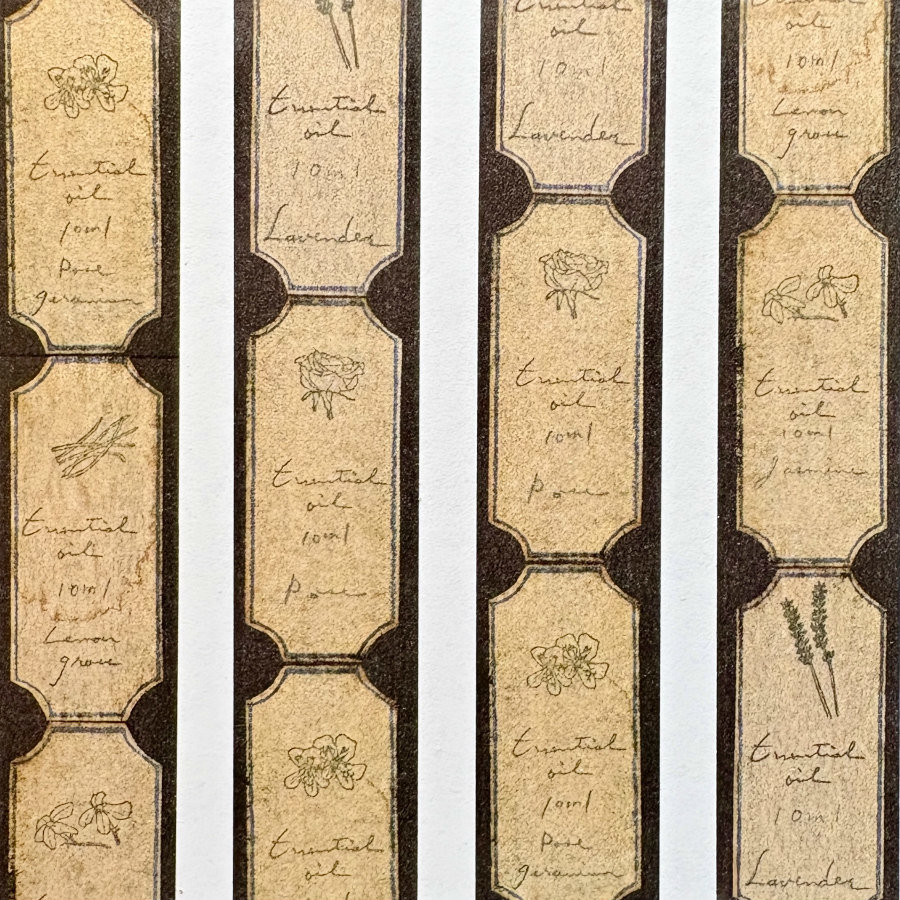 Essential
oil
10ml
Rose
geranium
Essential
oil
10ml
Lemon
grass
Essential
oil
10ml
Lavender
Essential
oil
10ml
Rose
Essential
oil
Essential
oil
10ml
Lavender
Essential
oil
10ml
Rose
Essential
oil
10ml
Rose
geranium
oil
10ml
Lemon
grass
Essential
oil
10ml
Jasmine
Essential
oil
10ml
Lavender